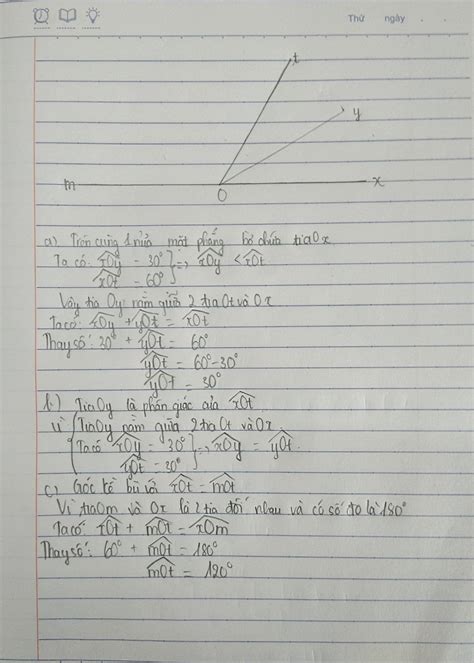 Thứ ngày . .
t
y
m
O
x
a) Trên cùng 1 nửa mặt phẳng bờ chứa tia Ox
Ta có: xOy = 30° } => xOy < xOt
xOt = 60°
Vậy tia Oy nằm giữa 2 tia Ot và Ox
Ta có: xOy + yOt = xOt
Thay số: 30° + yOt = 60°
yOt = 60° - 30°
yOt = 30°
b) Tia Oy là phân giác của xOt
vì { Tia Oy nằm giữa 2 tia Ot và Ox
Ta có xOy = 30° } => xOy = yOt
yOt = 30°
c) Góc kề bù với xOt = mOt
Vì tia Om và Ox là 2 tia đối nhau và có số đo là 180°
Ta có xOt + mOt = xOm
Thay số: 60° + mOt = 180°
mOt = 120°